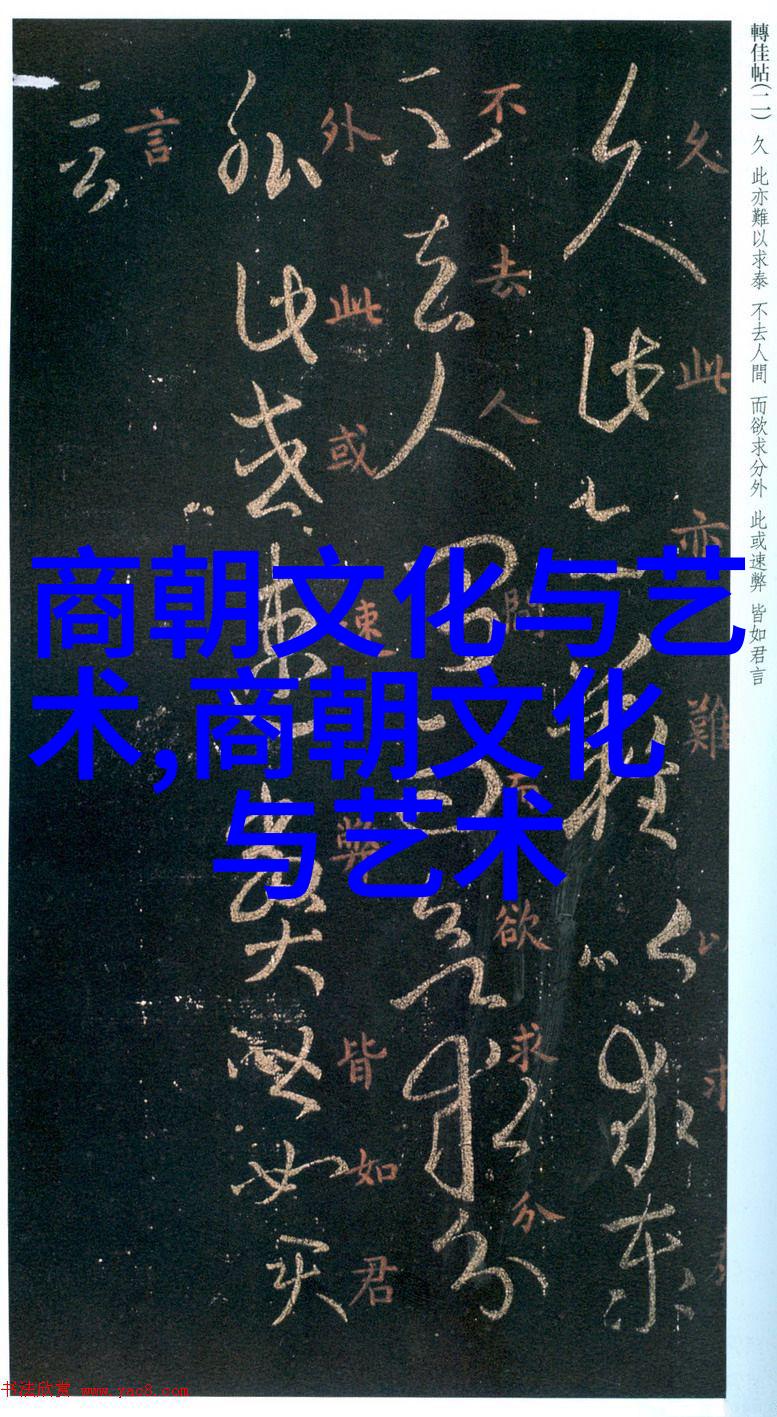 轉佳帖(二) 久 此亦難以求泰 不去人間 而欲求分外 此或速弊 皆如君言
久此亦難以求
不去人間而欲求分
外此或速弊皆如君
言
商朝文化与艺
术,商朝文化
与艺术
书法欣赏 www.yac8.com